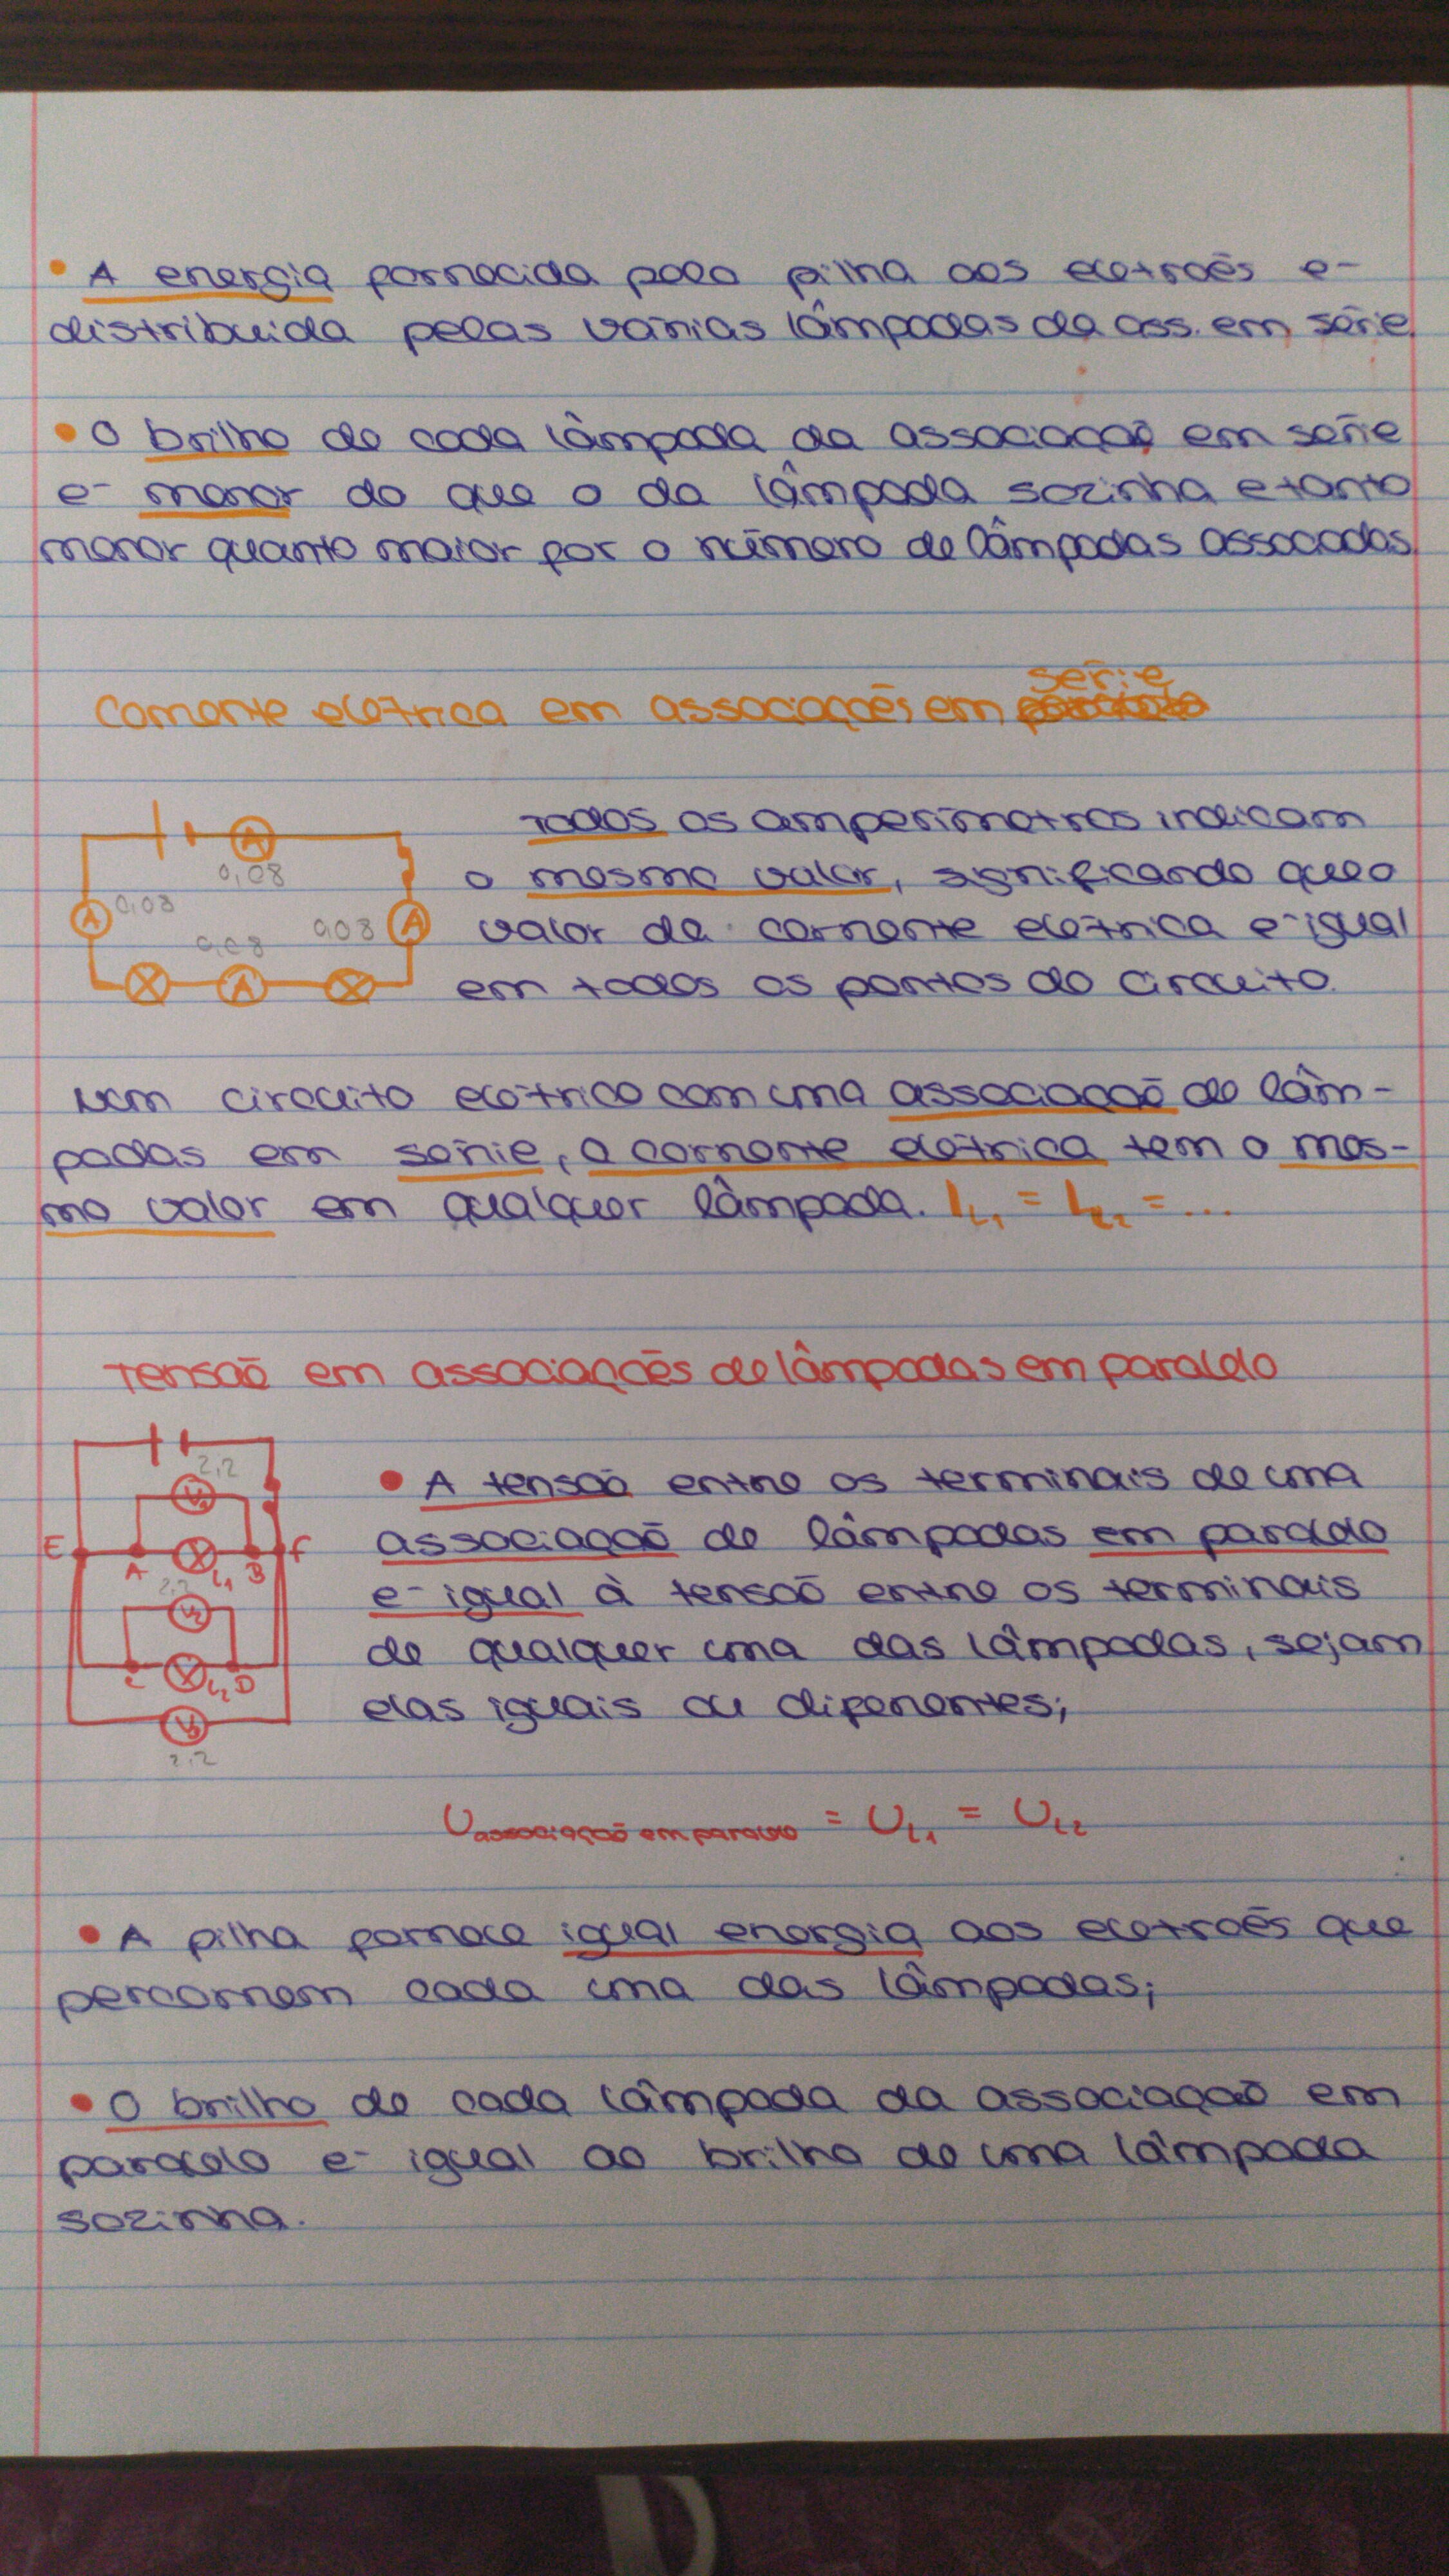 • A energia fornecida pela pilha aos eletrões é
distribuida pelas várias lâmpadas da ass. em série.
• O brilho de cada lâmpada da associação em série
é menor do que o da lâmpada sozinha e tanto
menor quanto maior for o número de lâmpadas associadas.
série
Corrente elétrica em associações em
Todos os amperímetros indicam
o mesmo valor, significando que o
valor da corrente elétrica é igual
em todos os pontos do circuito.
A
0,08
A
0,08
0,08
0,08
A
A
Num circuito elétrico com uma associação de lâm-
padas em série, a corrente elétrica tem o mes-
mo valor em qualquer lâmpada. I L1 = I L2 = ...
Tensão em associações de lâmpadas em paralelo
2,2
V1
E
A
L1
B
F
2,2
V2
C
L2
D
V3
2,2
• A tensão entre os terminais de uma
associação de lâmpadas em paralelo
é igual à tensão entre os terminais
de qualquer uma das lâmpadas, sejam
elas iguais ou diferentes;
U associação em paralelo = U L1 = U L2
• A pilha fornece igual energia aos eletrões que
percorrem cada uma das lâmpadas;
• O brilho de cada lâmpada da associação em
paralelo é igual ao brilho de uma lâmpada
sozinha.